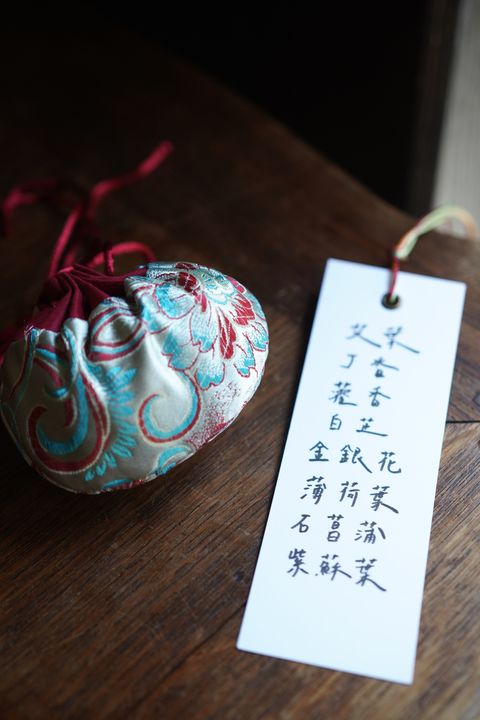 艾
丁香
藿香
白芷
金銀花
薄荷葉
石菖蒲
紫蘇葉